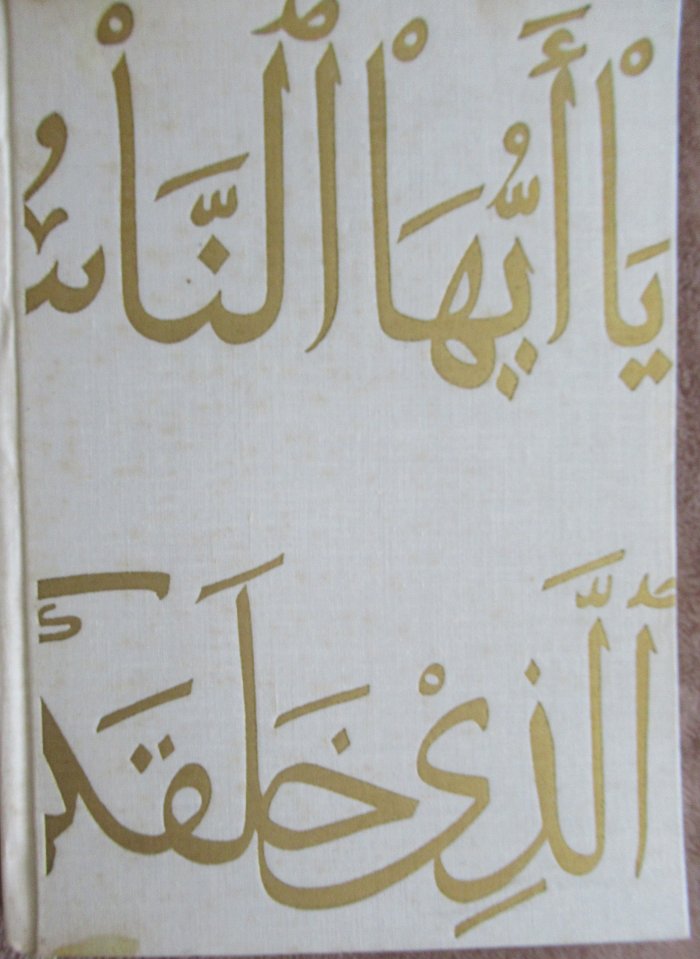 يَاْ أَيُّهَاْ ٱلنَّاْسُ
ٱلَّذِيْ خَلَقَكُ